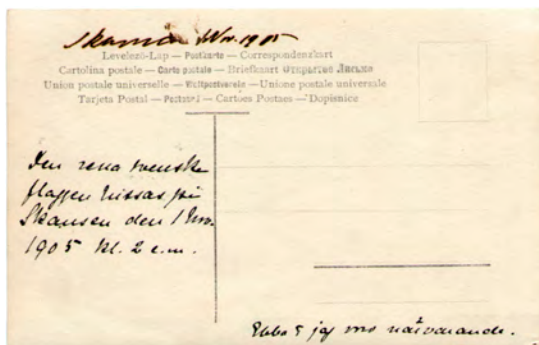 Skansen 1 Nov. 1905
Levelező-Lap — Postkarte — Correspondenzkart
Cartolina postale — Carte postale — Briefkaart Открытое Письмо
Union postale universelle — Weltpostverein — Unione postale universale
Tarjeta Postal — Postcard — Cartoes Postaes — Dopisnice
Den rena svenska
flaggen hissas på
Skansen den 1 Nov.
1905 kl. 2 e.m.
Ebba & jag voro närvarande.